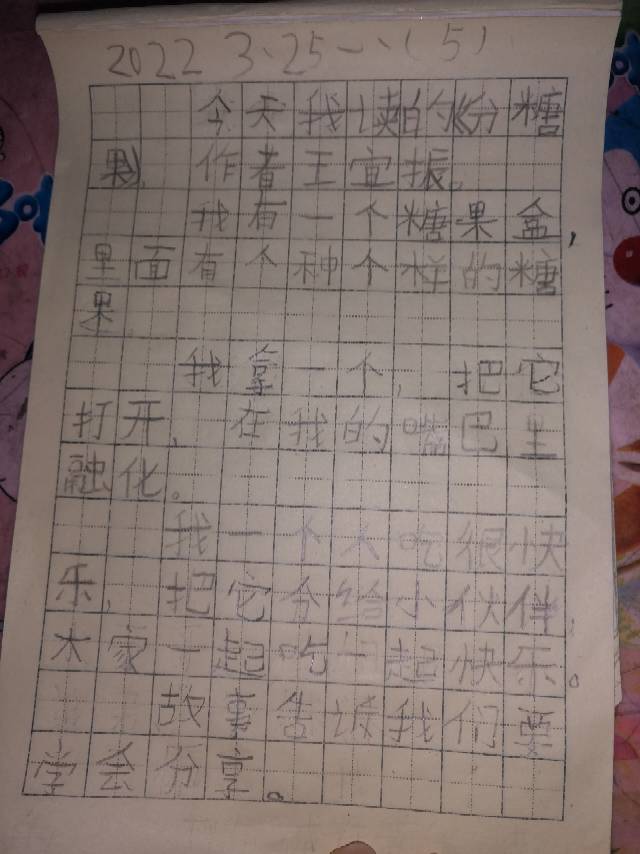 2022 3、25一、(5)
今天我读的《分糖
果》，作者王宜振。
我有一个糖果盒，
里面有个种个样的糖
果
我拿一个，把它
打开，在我的嘴巴里
融化。
我一个人吃很快
乐，把它分给小伙伴，
大家一起吃一起快乐。
故事告诉我们要
学会分享。